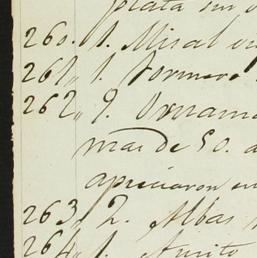 plata su
260. 1. Misal
261, 1.
262, 9. Ornam
mas de 50. a
apreciaron en
263, 2. Albas
264, 1. Amito